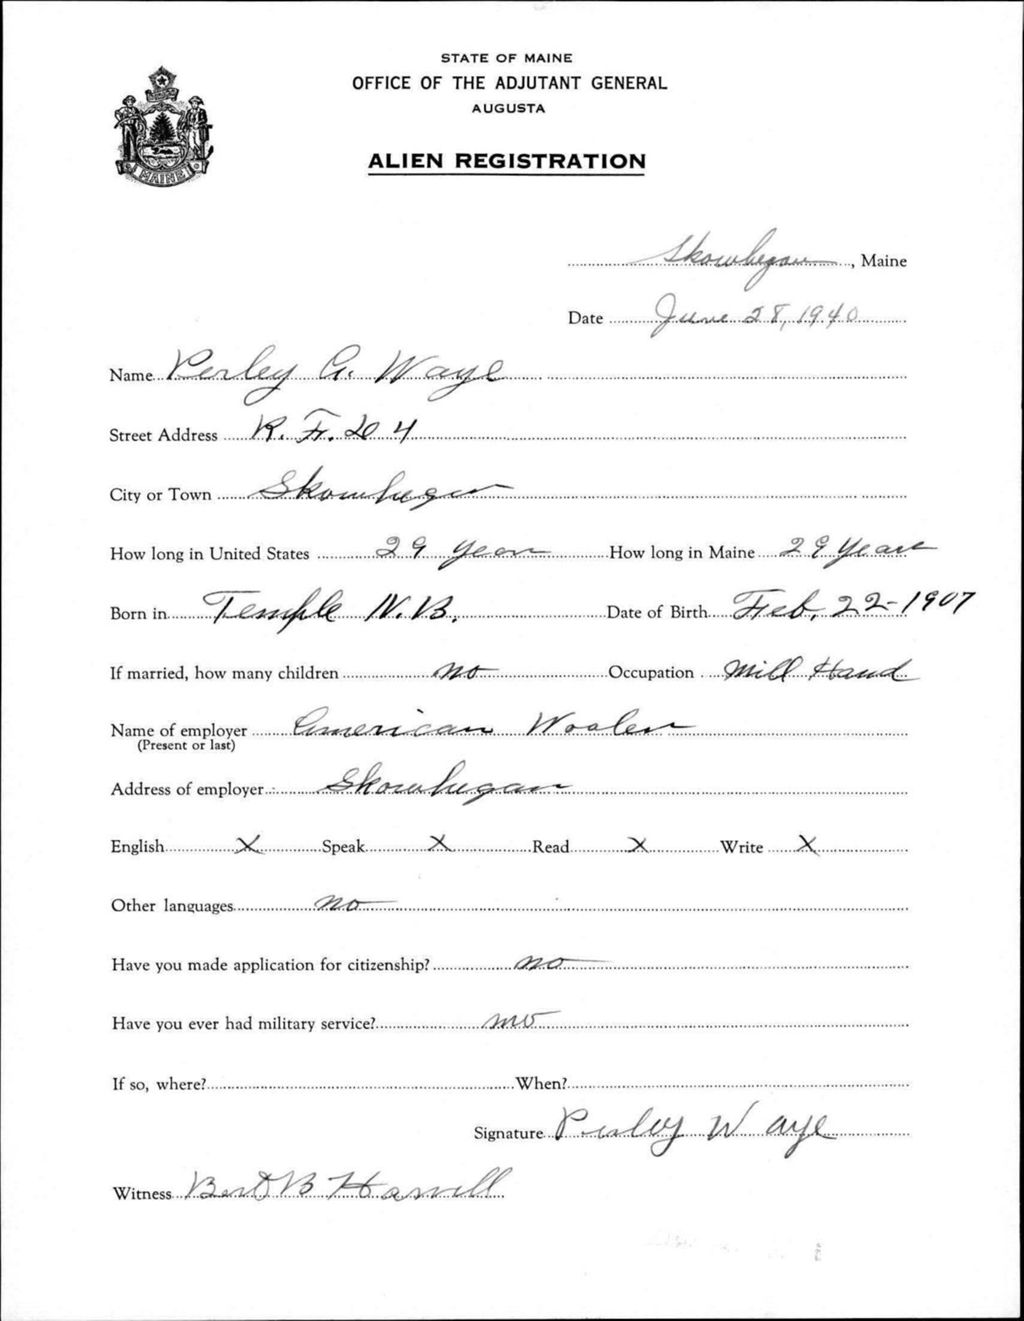 STATE OF MAINE
OFFICE OF THE ADJUTANT GENERAL
AUGUSTA
ALIEN REGISTRATION
MAINE
Skowhegan, Maine
Date June 28, 1940
Name Perley A. Waye
Street Address R. F. D 4
City or Town Skowhegan
How long in United States 29 years How long in Maine 29 years
Born in Temple N.B. Date of Birth Feb. 22-1907
If married, how many children no Occupation Mill Hand
Name of employer American Woolen
(Present or last)
Address of employer Skowhegan
English X Speak X Read X Write X
Other languages no
Have you made application for citizenship? no
Have you ever had military service? no
If so, where? When?
Signature Perley Waye
Witness Bert B